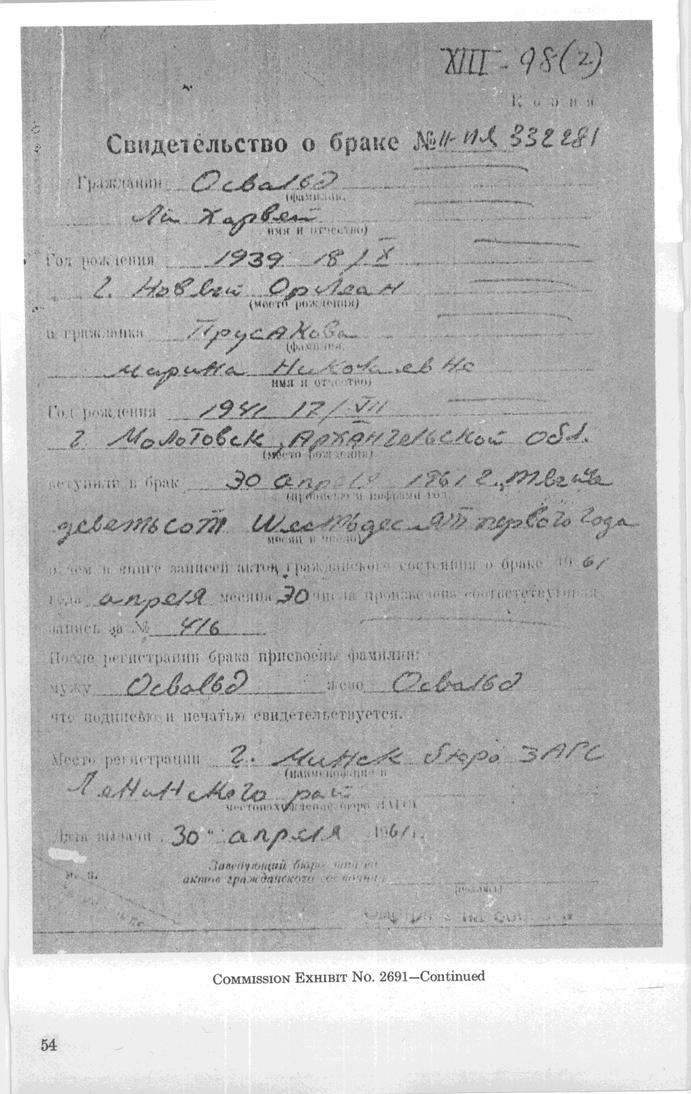 XIII-98(2)
Копия
Свидетельство о браке № II-ИЯ 332281
Гражданин Освальд
(фамилия,
Ли Харвей
имя и отчество)
Год рождения 1939 18/X
г. Новый Орлеан
(место рождения)
и гражданка Прусакова
(фамилия,
Марина Николаевна
имя и отчество)
Год рождения 1941 17/VII
г. Молотовск, Архангельской обл.
(место рождения)
вступили в брак 30 апреля 1961 г., тысяча
(прописью и цифрами год,
девятьсот шестьдесят первого года
месяц и число)
о чем в книге записей актов гражданского состояния о браке 1961
года апреля месяца 30 числа произведена соответствующая
запись за № 416
После регистрации брака присвоены фамилии:
мужу Освальд жене Освальд
что подписью и печатью свидетельствуется.
Место регистрации г. Минск бюро ЗАГС
(наименование и
Ленинского рай
местонахождение бюро ЗАГС)
Дата выдачи 30 апреля 1961г.
М. П.
Заведующий бюро записей
актов гражданского состояния
(подпись)
COMMISSION EXHIBIT NO. 2691—Continued
54